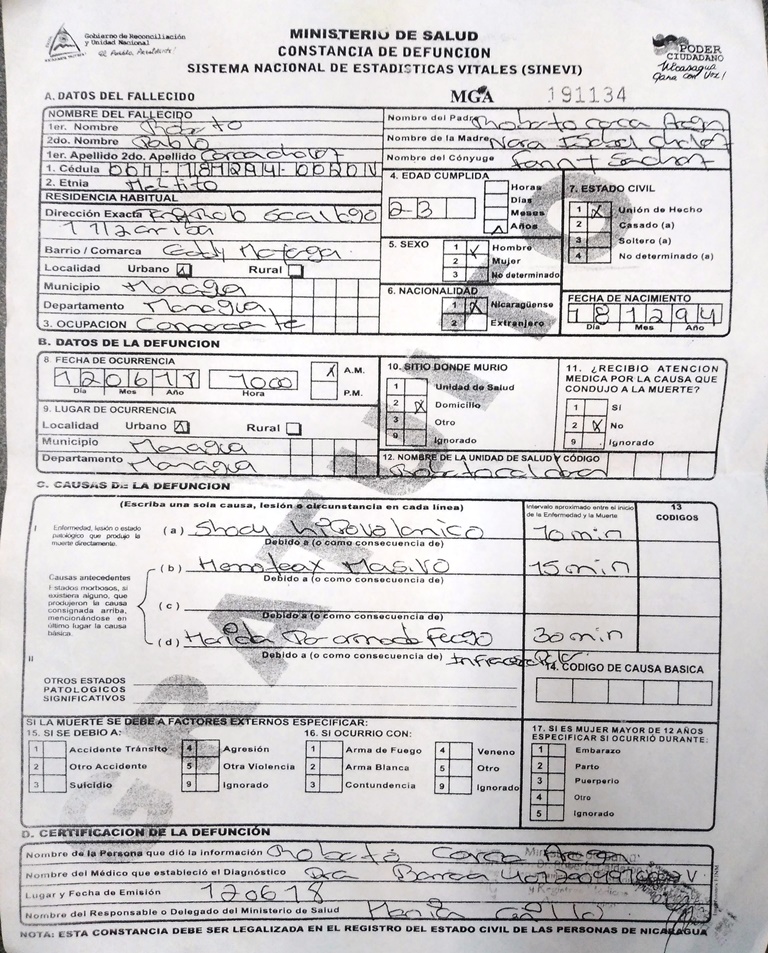 Gobierno de Reconciliación
y Unidad Nacional
El Pueblo, Presidente!
MINISTERIO DE SALUD
CONSTANCIA DE DEFUNCION
SISTEMA NACIONAL DE ESTADISTICAS VITALES (SINEVI)
PODER
CIUDADANO
Nicaragua
Gana con Voz!
A. DATOS DEL FALLECIDO
MGA 191134
NOMBRE DEL FALLECIDO
1er. Nombre Roberto
2do. Nombre Pablo
1er. Apellido 2do. Apellido
1. Cédula 001-181294-0020N
2. Etnia Mestizo
Nombre del Padre Roberto
Nombre de la Madre Nora Isabel
Nombre del Cónyuge
RESIDENCIA HABITUAL
Dirección Exacta
1 1/2 arriba
Barrio / Comarca Eddy
Localidad Urbano Rural
Municipio Managua
Departamento Managua
3. OCUPACION Comerciante
4. EDAD CUMPLIDA
23
Horas
Días
Meses
Años
5. SEXO
1 Hombre
2 Mujer
3 No determinado
6. NACIONALIDAD
1 X Nicaragüense
2 Extranjero
7. ESTADO CIVIL
1 X Unión de Hecho
2 Casado (a)
3 Soltero (a)
4 No determinado (a)
FECHA DE NACIMIENTO
181294
Día Mes Año
B. DATOS DE LA DEFUNCION
8. FECHA DE OCURRENCIA
120618 700
Día Mes Año Hora
X A.M.
P.M.
9. LUGAR DE OCURRENCIA
Localidad Urbano Rural
Municipio Managua
Departamento Managua
10. SITIO DONDE MURIO
1 Unidad de Salud
2 X Domicilio
3 Otro
9 Ignorado
11. ¿RECIBIO ATENCION
MEDICA POR LA CAUSA QUE
CONDUJO A LA MUERTE?
1 Si
2 X No
9 Ignorado
12. NOMBRE DE LA UNIDAD DE SALUD Y CÓDIGO
C. CAUSAS DE LA DEFUNCION
(Escriba una sola causa, lesión o circunstancia en cada línea)
Intervalo aproximado entre el inicio
de la Enfermedad y la Muerte
13
CODIGOS
I
Enfermedad, lesión o estado
patologico que produjo la
muerte directamente.
(a) Shock hipovolemico 10 min
Debido a (o como consecuencia de)
Causas antecedentes
Estados morbosos, si
existiera alguno, que
produjeron la causa
consignada arriba,
mencionándose en
último lugar la causa
básica.
(b) Hemotorax Masivo 15 min
Debido a (o como consecuencia de)
(c)
Debido a (o como consecuencia de)
(d) Herida Por arma de fuego 30 min
Debido a (o como consecuencia de)
II
OTROS ESTADOS
PATOLOGICOS
SIGNIFICATIVOS
14. CODIGO DE CAUSA BASICA
SI LA MUERTE SE DEBE A FACTORES EXTERNOS ESPECIFICAR:
15. SI SE DEBIO A:
1 Accidente Tránsito
2 Otro Accidente
3 Suicidio
4 Agresión
5 Otra Violencia
9 Ignorado
16. SI OCURRIO CON:
1 Arma de Fuego
2 Arma Blanca
3 Contundencia
4 Veneno
5 Otro
9 Ignorado
17. SI ES MUJER MAYOR DE 12 AÑOS
ESPECIFICAR SI OCURRIÓ DURANTE:
1 Embarazo
2 Parto
3 Puerperio
4 Otro
5 Ignorado
D. CERTIFICACION DE LA DEFUNCIÓN
Nombre de la Persona que dió la información Roberto
Nombre del Médico que estableció el Diagnóstico Dra.
Lugar y Fecha de Emisión 120618
Nombre del Responsable o Delegado del Ministerio de Salud
NOTA: ESTA CONSTANCIA DEBE SER LEGALIZADA EN EL REGISTRO DEL ESTADO CIVIL DE LAS PERSONAS DE NICARAGUA
GRATUITO